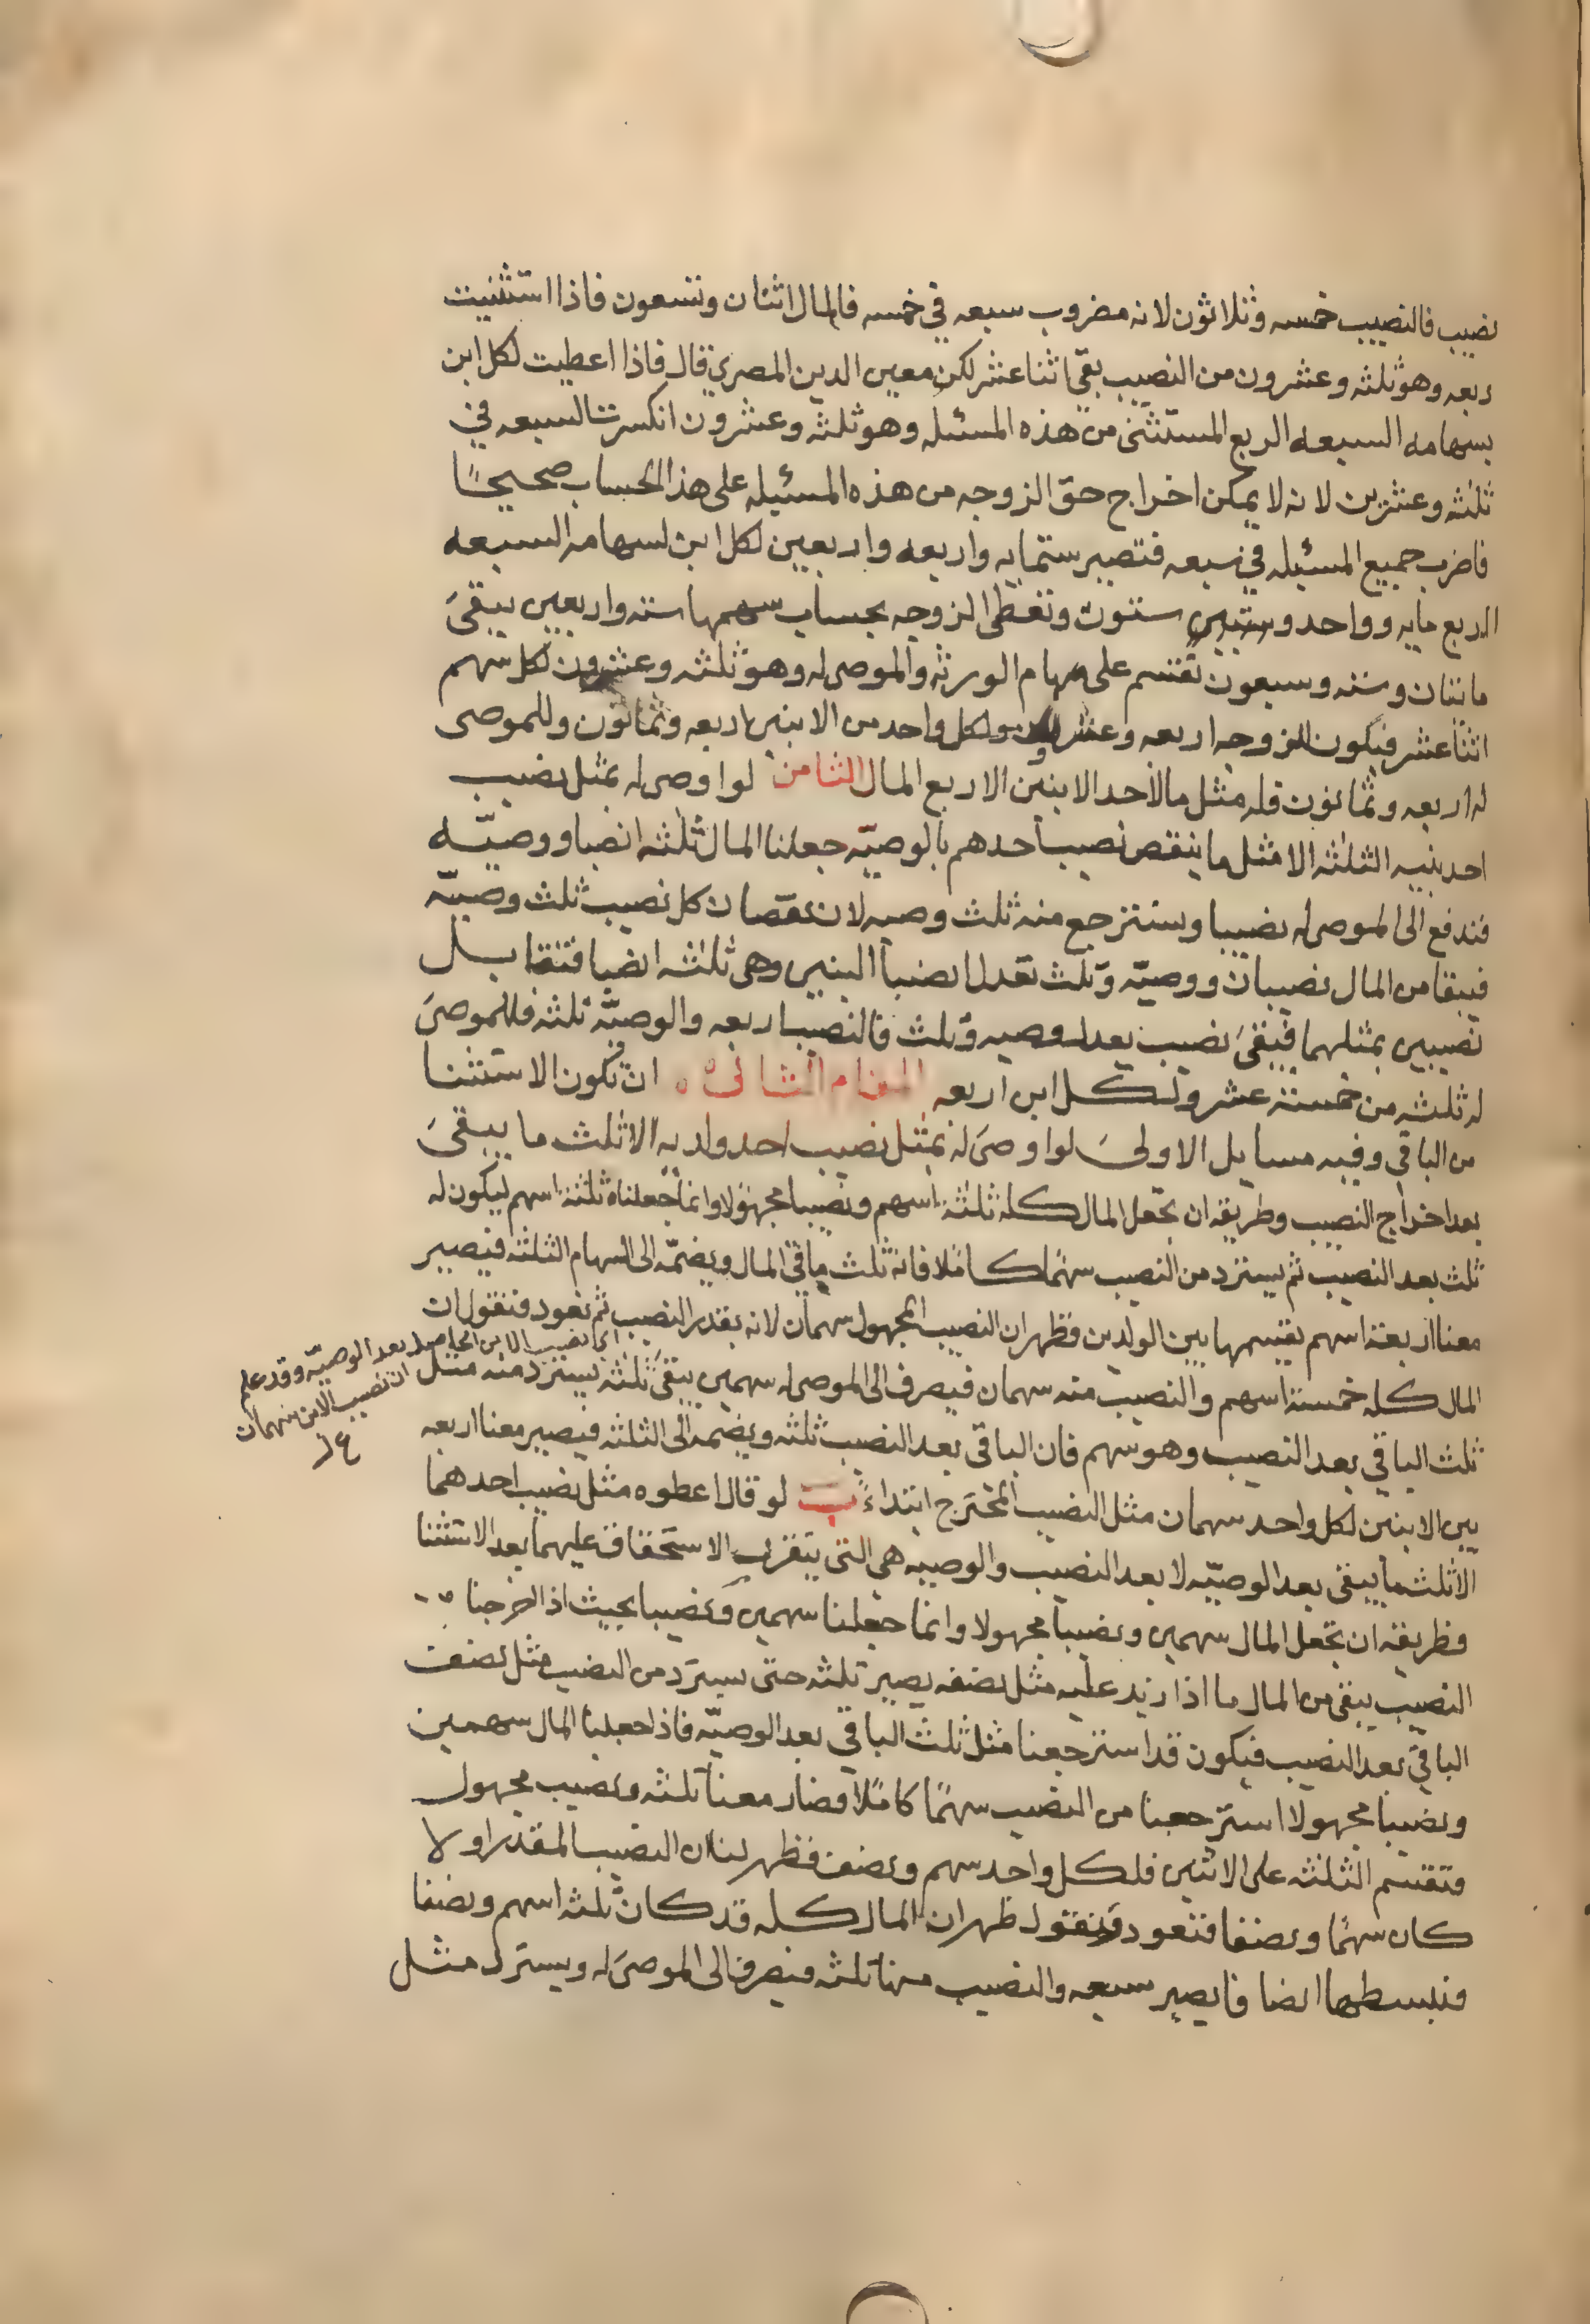 نصيب فالنصيب خمسه وثلاثون لانه مضروب سبعه في خمسه فالمال اثنان وتسعون فاذا استثنيت
ربعه وهو ثلثه وعشرون من النصيب بقى اثنا عشر لكن معين الدين المصري قال فاذا اعطيت لكل ابن
بسهامه السبعه الربع المستثنى من هذه المسئله وهو ثلثه وعشرون انكسرت السبعه في
ثلثه وعشرين لانه لا يمكن اخراج حق الزوجه من هذه المسئيله على هذا الحساب صحيحًا
فاضرب جميع المسئيله في سبعه فتصير ستمايه واربعه واربعين لكل ابن لسهامه السبعه
الربع مايه وواحد وستين ستون وتعطى الزوجه بحساب سهمها سته واربعين يبقىَ
ماتنان وسته وسبعون تقسم على سهام الورثه والموصى له وهو ثلثه وعشرون لكل سهم
اثنا عشر فيكون للزوجه اربعه وعشرون ولكل واحد من الابنين اربعه وثمانون وللموصى
له اربعه وثمانون فله مثل ما لاحد الابنين الا ربع المال الثامن لو اوصى له بمثل نصيب
احد بنيه الثلثه الا مثل ما ينقص نصيب احدهم بالوصيّه جعلنا المال ثلثه انصبا ووصيّه
فندفع الى الموصى له نصيبا ونسترجع منه ثلث وصيه لان نقصان كل نصيب ثلث وصيّه
فيبقا من المال نصيبان ووصيّه وثلث تعدل انصبا البنين وهى ثلثه انصبا فتقابل
نصيبين بمثلهما فيبقىَ نصيب يعدل وصيه وثلث فالنصيب اربعه والوصيّه ثلثه فللموصىَ
له ثلثه من خمسة عشر ولكل ابن اربعه المقام الثانى ان يكون الاستثنا
من الباقي وفيه مسايل الاولىَ لو اوصىَ له بمثل نصيب احد ولديه الا ثلث ما يبقىَ
بعد اخراج النصيب وطريقه ان تجعل المال كله ثلثة اسهم ونصيبا مجهولا وانما جعلناه ثلثة اسهم ليكون له
ثلث بعد النصيب ثم يسترد من النصيب سهمًا كاملا فانه ثلث باقي المال ويضمّه الى السهام الثلثه فيصير
معنا اربعة اسهم يقسمها بين الولدين فظهر ان النصيب المجهول سهمان لانه بقدر النصيب ثم نعود فنقول ان
المال كله خمسة اسهم والنصيب منه سهمان فيصرف الى الموصى له سهمين يبقىَ ثلثه يسترد منه مثل
ثلث الباقي بعد النصيب وهو سهم فان الباقي بعد النصيب ثلثه ويضمه الى الثلثه فيصير معنا اربعه
بين الابنين لكل واحد سهمان مثل النصيب المخرج ابتداءً ب لو قال اعطوه مثل نصيب احدهما
الا ثلث ما يبقى بعد الوصيّه لا بعد النصيب والوصيه هي التى يتقرر الاستحقاق عليها بعد الاستثنا
فطريقه ان تجعل المال سهمين ونصيبا مجهولا وانما جعلنا سهمين ونصيبا بحيث اذا اخرجنا
النصيب يبقى من المال ما اذا زيد عليه مثل نصفه يصير ثلثه حتى يسترَد من النصيب مثل نصف
الباقي بعد النصيب فيكون قد استرجعنا مثل ثلث الباقي بعد الوصيّه فاذا جعلنا المال سهمين
ونصيبا مجهولا استرجعنا من النصيب سهمًا كاملًا فصار معنا ثلثه ونصيب مجهول
فتقسم الثلثه على الاثنين فلكل واحد سهم ونصف فظهر لنا ان النصيب المقدر اولا
كان سهمًا ونصفا فنعود فنقول ظهر ان المال كله قد كان ثلثه اسهم ونصفا
فنبسطها انصافا يصير سبعه والنصيب منها ثلثه فيصرف الى الموصىَ له ويسترد مثل
اى نصيب الابن الحاصل بعد الوصيّه وقد علم
ان نصيب الابن سهمان